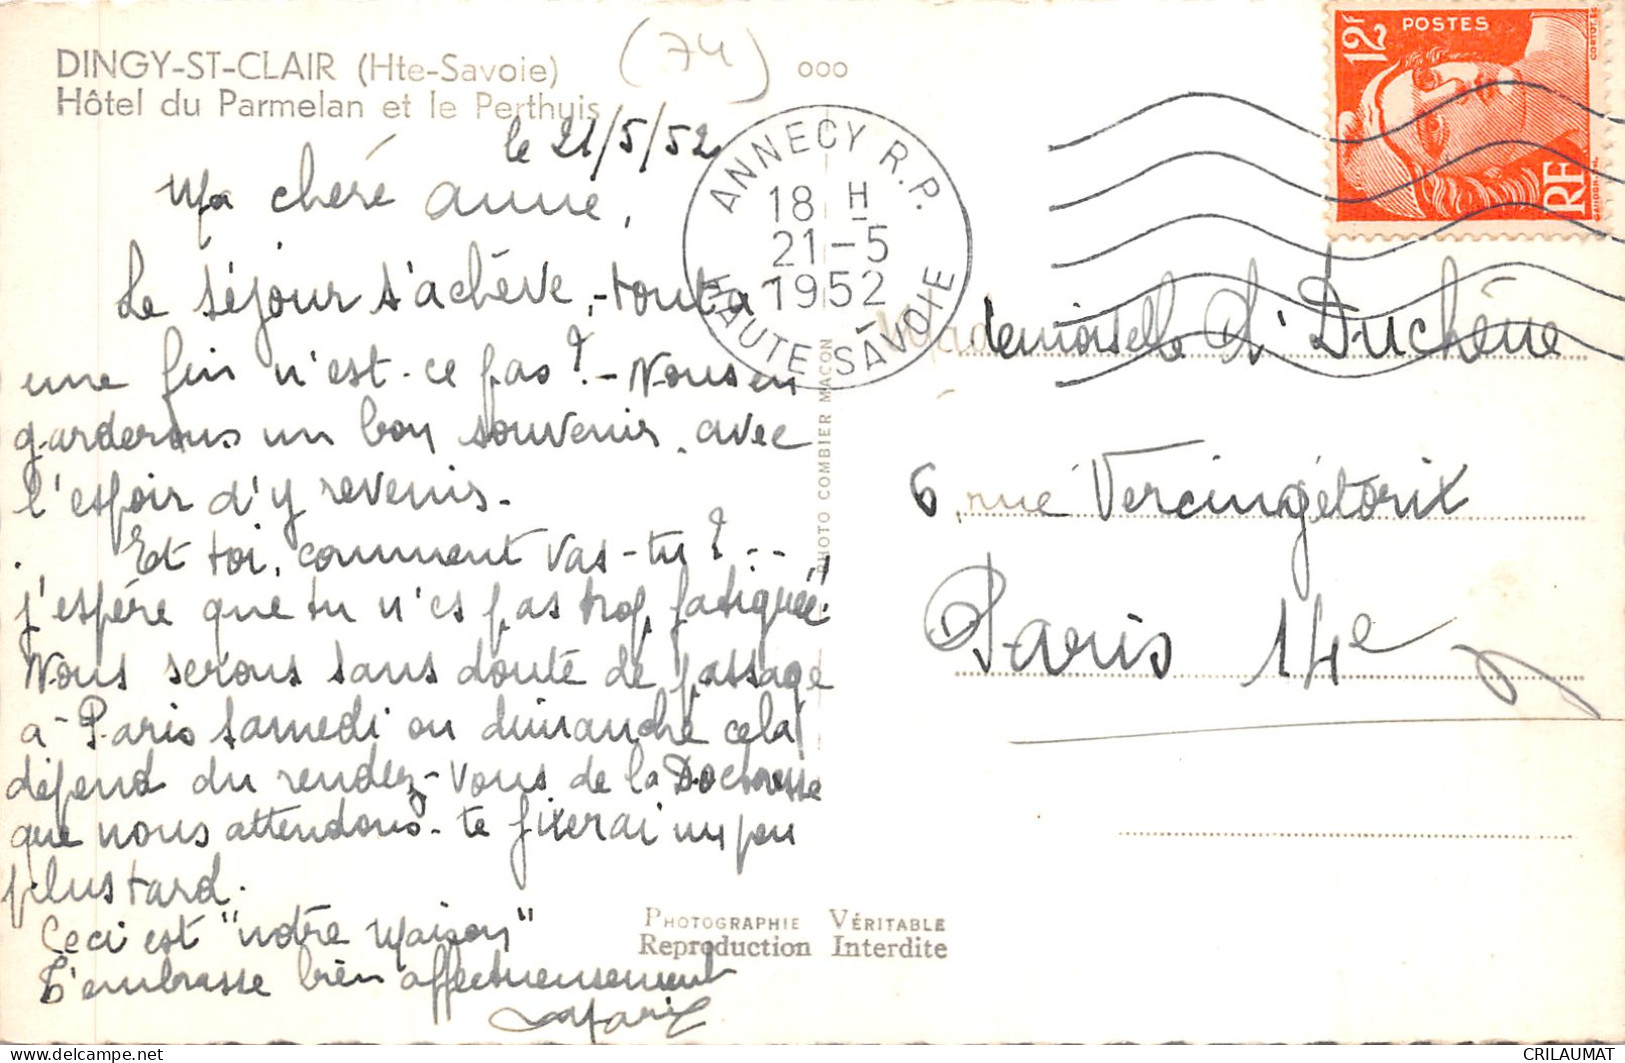 DINGY-ST-CLAIR (Hte-Savoie)
Hôtel du Parmelan et le Perthuis
(74)
ooo
le 21/5/52
Ma chère Anne,
Le séjour s'achève, - tout a
une fin n'est-ce pas ? - Nous en
garderons un bon souvenir, avec
l'espoir d'y revenir.
Et toi, comment vas-tu ? ...
j'espère que tu n'es pas trop fatiguée.
Nous serons sans doute de passage
à Paris samedi ou dimanche cela
dépend du rendez-vous de la Doctoresse
que nous attendons - te fixerai un peu
plus tard.
Ceci est "notre maison"
T'embrasse bien affectueusement
ANNECY R.P.
18 H
21-5
1952
HAUTE-SAVOIE
12F
POSTES
RF
Mademoiselle A. Duchêne
6, rue Vercingétorix
Paris 14e
PHOTO COMBIER MACON
PHOTOGRAPHIE VÉRITABLE
Reproduction Interdite
CRILAUMAT